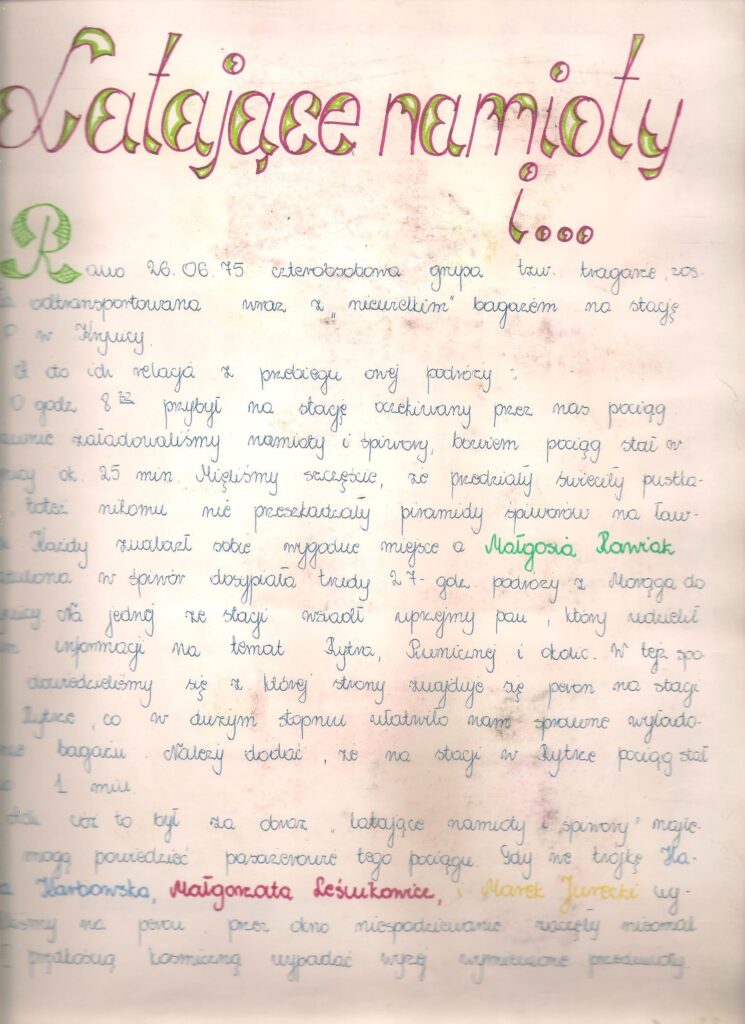 Latające namioty
i...
Rano 26.06.75 czteroosobowa grupa tzw. tragarze, zos-
ła odtransportowana wraz z „niewielkim" bagażem na stację
P w Krynicy.
A oto ich relacja z przebiegu owej podróży :
O godz 8 32 przybył na stację oczekiwany przez nas pociąg
załadowaliśmy namioty i śpiwory, bowiem pociąg stał w
nicy ok. 25 min. Mieliśmy szczęście, że przedziały świeciły pustka-
toteż nikomu nie przeszkadzały piramidy śpiworów na ław-
Każdy znalazł sobie wygodne miejsce a Małgosia Rawiak
tulona w śpiwór dosypiała trudy 27- godz. podróży z Morąga do
nicy. Na jednej ze stacji wsiadł uprzejmy pan, który udzielił
informacji na temat Rytra, Piwnicznej i okolic. W tej spo
dowiedzieliśmy się z której strony znajduje się peron na stacji
Rytrze, co w dużym stopniu ułatwiło nam sprawne wyłado-
nie bagażu. Należy dodać, że na stacji w Rytrze pociąg stał
1 min.
cóż to był za obraz „latające namioty i śpiwory" najle-
mogą powiedzieć pasażerowie tego pociągu. Gdy we trójkę Ha-
a Karbowska, Małgorzata Leśnikowicz, i Marek Jurecki wy-
liśmy na peron przez okno niespodziewanie zaczęły nieomal
prędkością kosmiczną wypadać wyżej wymienione przedmioty